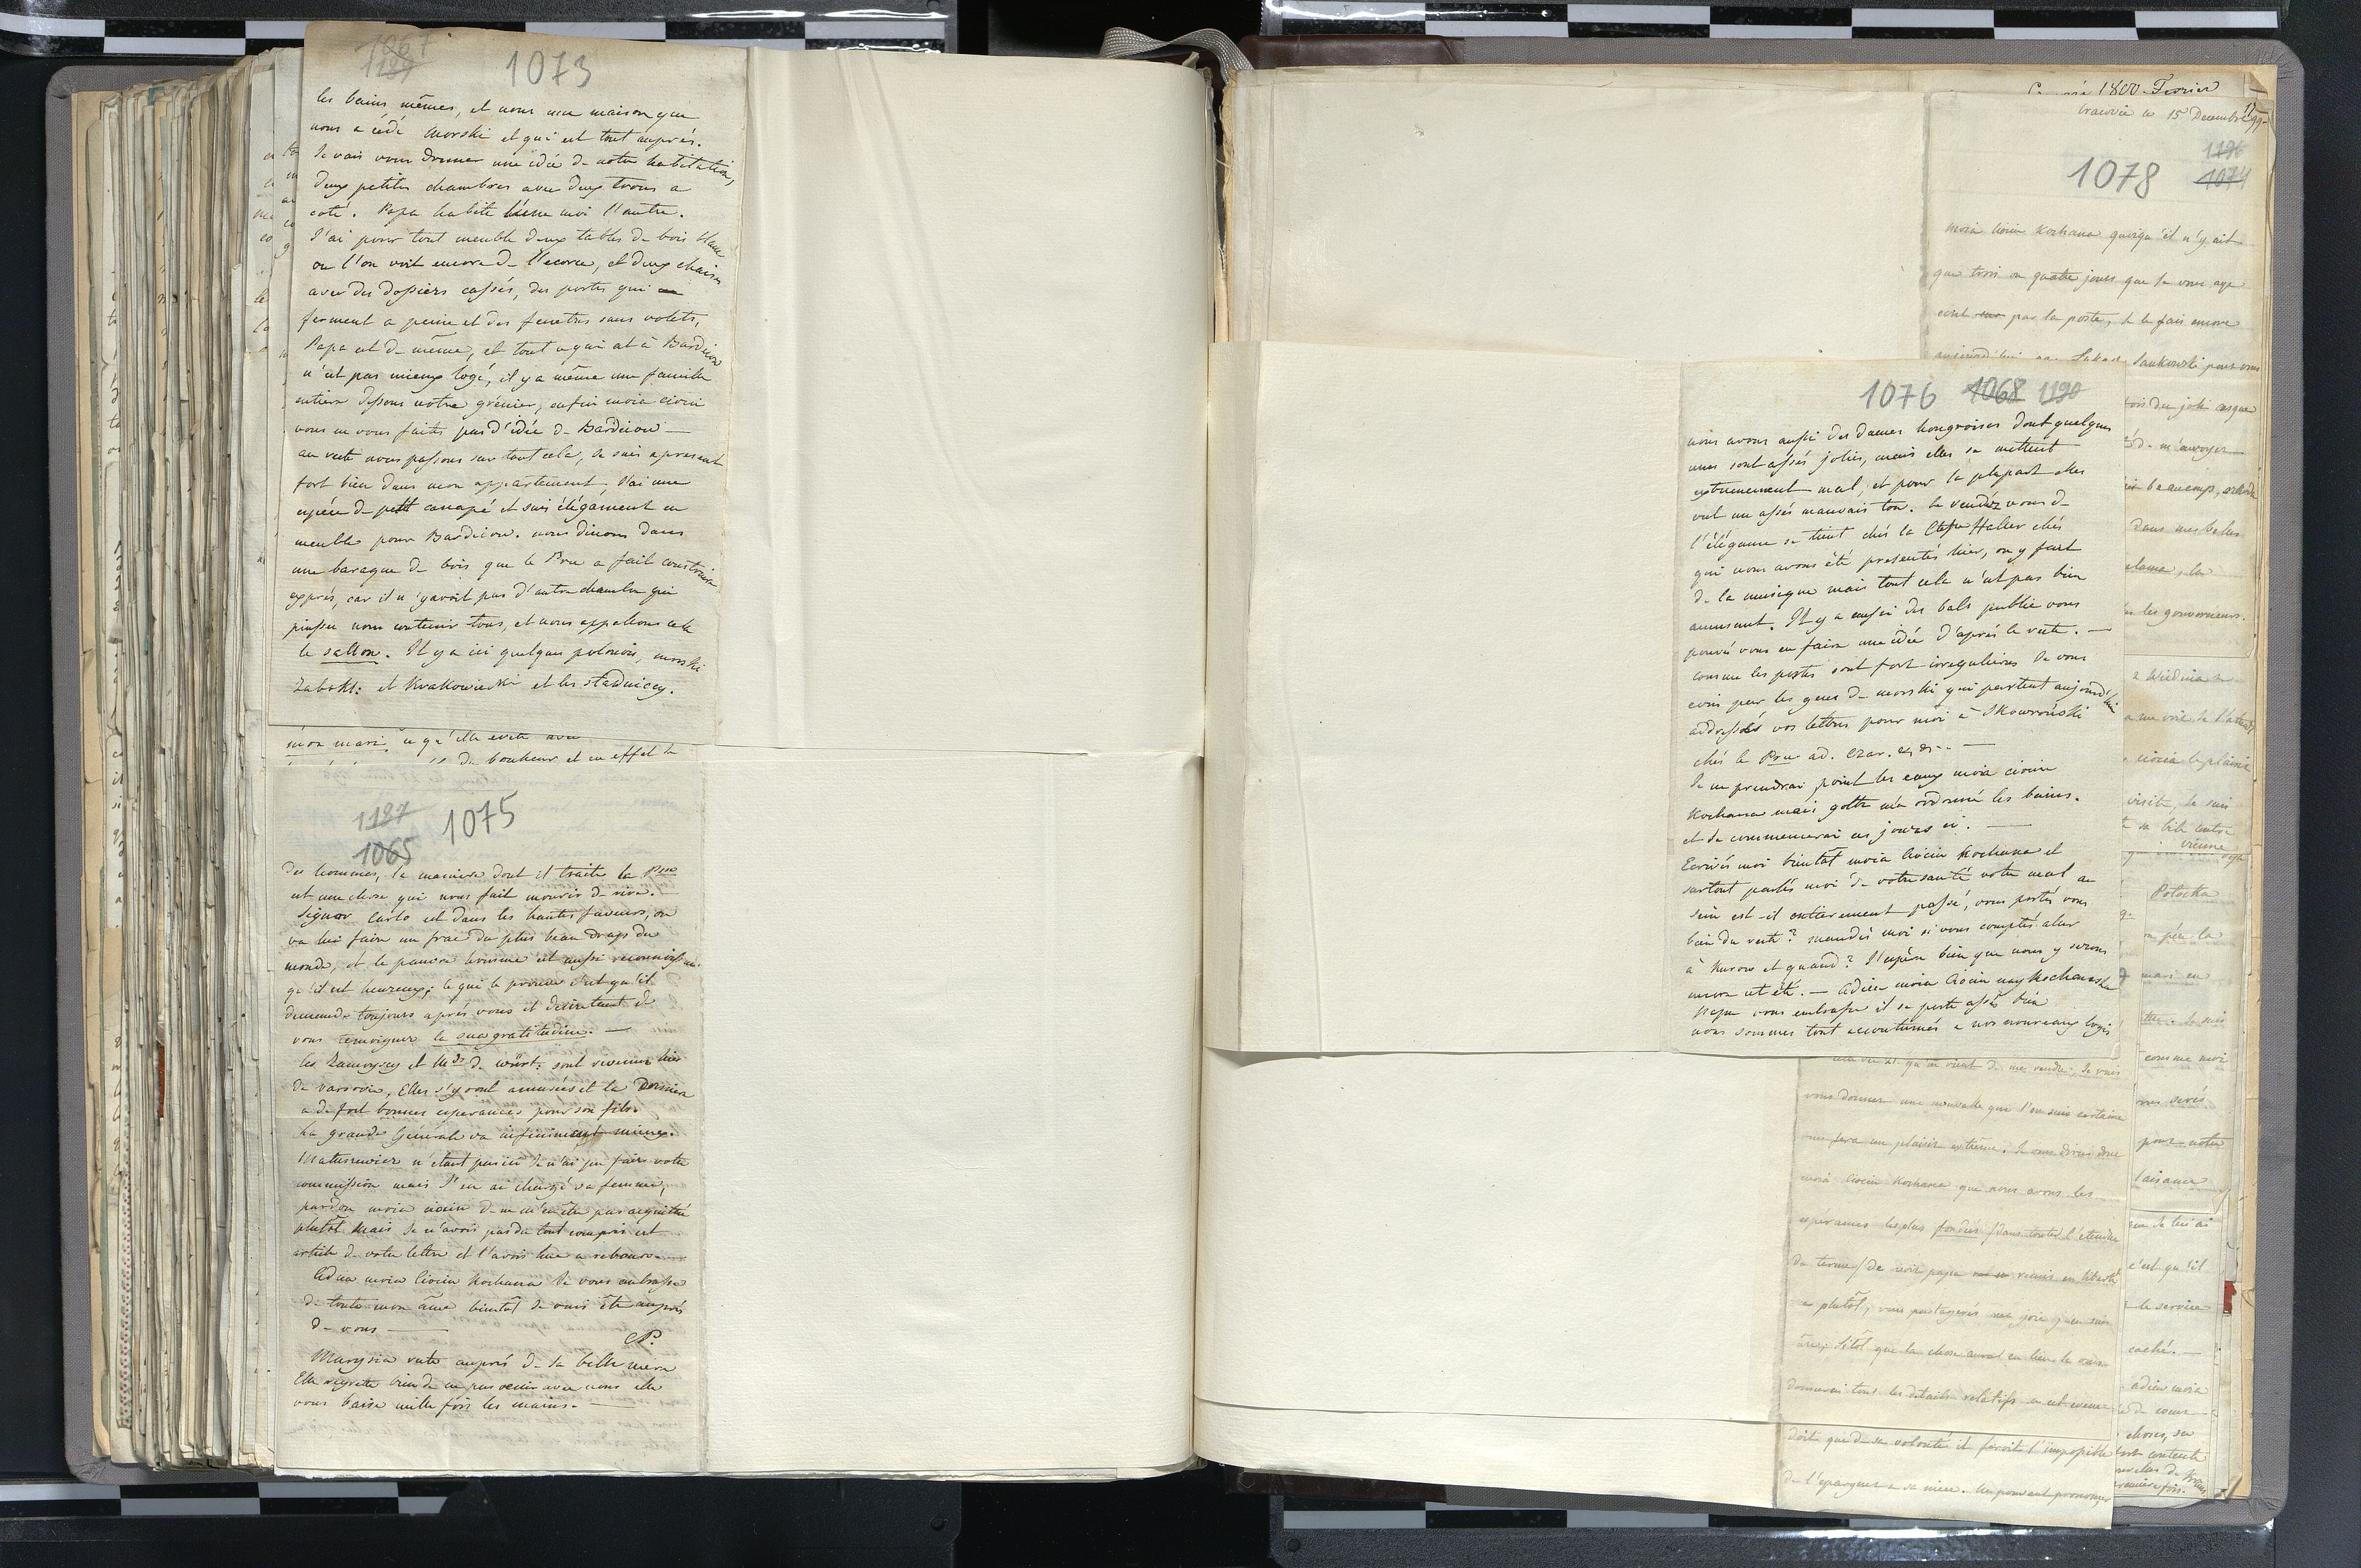 1067
1189
1073
les bains mêmes, et nous une maison que
nous a cédé Morski et qui est tout auprés.
Je vais vous donner une idée de notre habitation,
deux petites chambres avec deux trous a
coté. Papa habite l'une moi l'autre.
J'ai pour tout meuble deux tables de bois blanc
ou l'on voit encore de l'ecorce, et deux chaises
avec des dossiers cassés, des portes qui
ferment a peine et des fenetres sans volets,
Papa est de même, et tout ce qui est à Bardiow
n'est pas mieux logé, il y a même une famille
entiere dessous notre grénier, enfin moia ciociu
vous ne vous faites pas d'idée de Bardiow —
au reste nous passons sur tout cela, je suis a present
fort bien dans mon appartement, j'ai une
espéce de petit canapé et suis élégament en
meuble pour Bardiow. nous dinons dans
une baraque de bois que le Pce a fait construire
exprés, car il n'y avoit pas d'autre chambre qui
puisse nous contenir tous, et nous appellons cela
le sallon. Il y a ici quelques polonois, morski
Zabski et Krakowiecki et les stadniccy.
mon mari, ce qu'elle
du bonheur et en effet je
1187
1065
1075
des hommes, la maniere dont il traite la Psse
est une chose qui nous fait mourir de rire. —
Signor Carlo est dans les hautes faveurs, on
va lui faire un frac du plus beau drap du
monde, et le pauvre homme est aussi
qu'il est heureux; ce qui le prouve c'est qu'il
demande toujours aprés vous et
vous temoigner la sua gratitudine. —
les Zamoyscy et Md de Würt: sont revenus hier
de varsovie, Elles s'y sont amusées et la Derniere
a de fort bonnes esperances pour son fils.
La grande Générale va infiniment mieux.
Matusewicz n'etant pas ici je n'ai pu faire votre
commission mais j'en ai chargé sa femme,
pardon moia ciociu de ne m'en être pas acquittée
plutôt mais je n'avois pas du tout compris cet
article de votre lettre et l'avois lue a rebours.
Adieu moia Ciociu Kochana je vous embrasse
de toute mon âme bientôt je vais être auprés
de vous —
CP.
Marysia reste auprés de sa belle mere
Elle regrette bien de ne pas venir avec nous elle
vous baise mille fois les mains. —
1800 Fevrier
Cracovie ce 15 Decembre 1799
1196
1074
1078
Moia Ciociu Kochana quoiqu'il n'y ait
que trois ou quatre jours que je vous aye
ecrit par la poste, je le fais encore
aujourd'hui par Sankowski pour vous
1076 1068 1190
nous avons aussi des dames hongroises dont quelques
unes sont assés jolies, mais elles se mettent
extremement mal, et pour la plupart elles
ont un assés mauvais ton. le rendéz vous de
l'élégance se tient chés la Ctesse Haller chés
qui nous avons été presentés hier, on y fait
de la musique mais tout cela n'est pas bien
amusant. Il y a aussi des bals public vous
pouvés vous en faire une idée d'aprés le reste. —
comme les postes sont fort irregulieres je vous
ecris par les gens de morski qui partent aujourd'hui
addressés vos lettres pour moi à Skowroński
chés le Pce ad. Czar. —
Je ne prendrai point les eaux moia ciociu
Kochana mais goltz m'a ordonné les bains.
et je commencerai ces jours ci. —
Ecrivés moi bientôt moia Ciociu Kochana et
surtout parlés moi de votre santé votre mal au
sein est-il entierement passé, vous portés vous
bien du reste? mandés moi si vous comptés aller
à Kurow et quand? J'espére bien que nous y serons
encore cet été. — Adieu moia Ciociu nay Kochansza
Papa vous embrasse il se porte assés bien
nous sommes tout accoutumés a nos nouveaux logis
qu'on vient de me rendre, Je vais
vous donner une nouvelle que j'en suis certaine
vous fera un plaisir extrême. Je vous dirai donc
moia Ciociu Kochana que nous avons les
espérances les plus fondées (dans toute l'étendue
du terme) de voir papa remis en liberté
au plutôt, vous partagerés ma joie j'en suis
sure, sitôt que la chose aura eu lieu je vous
donnerai tous les details relatifs a cet evene-
doit que de sa volonté il feroit l'impossible
de l'epargner a sa mere.
de m'envoyer
beaucoup,
Dans mes belles
les gouverneurs.
Potocka
mari en
Je suis
comme moi
pour votre
c'est qu'il
le service
caché. —
adieu moia
de coeur
choses, sa
contente